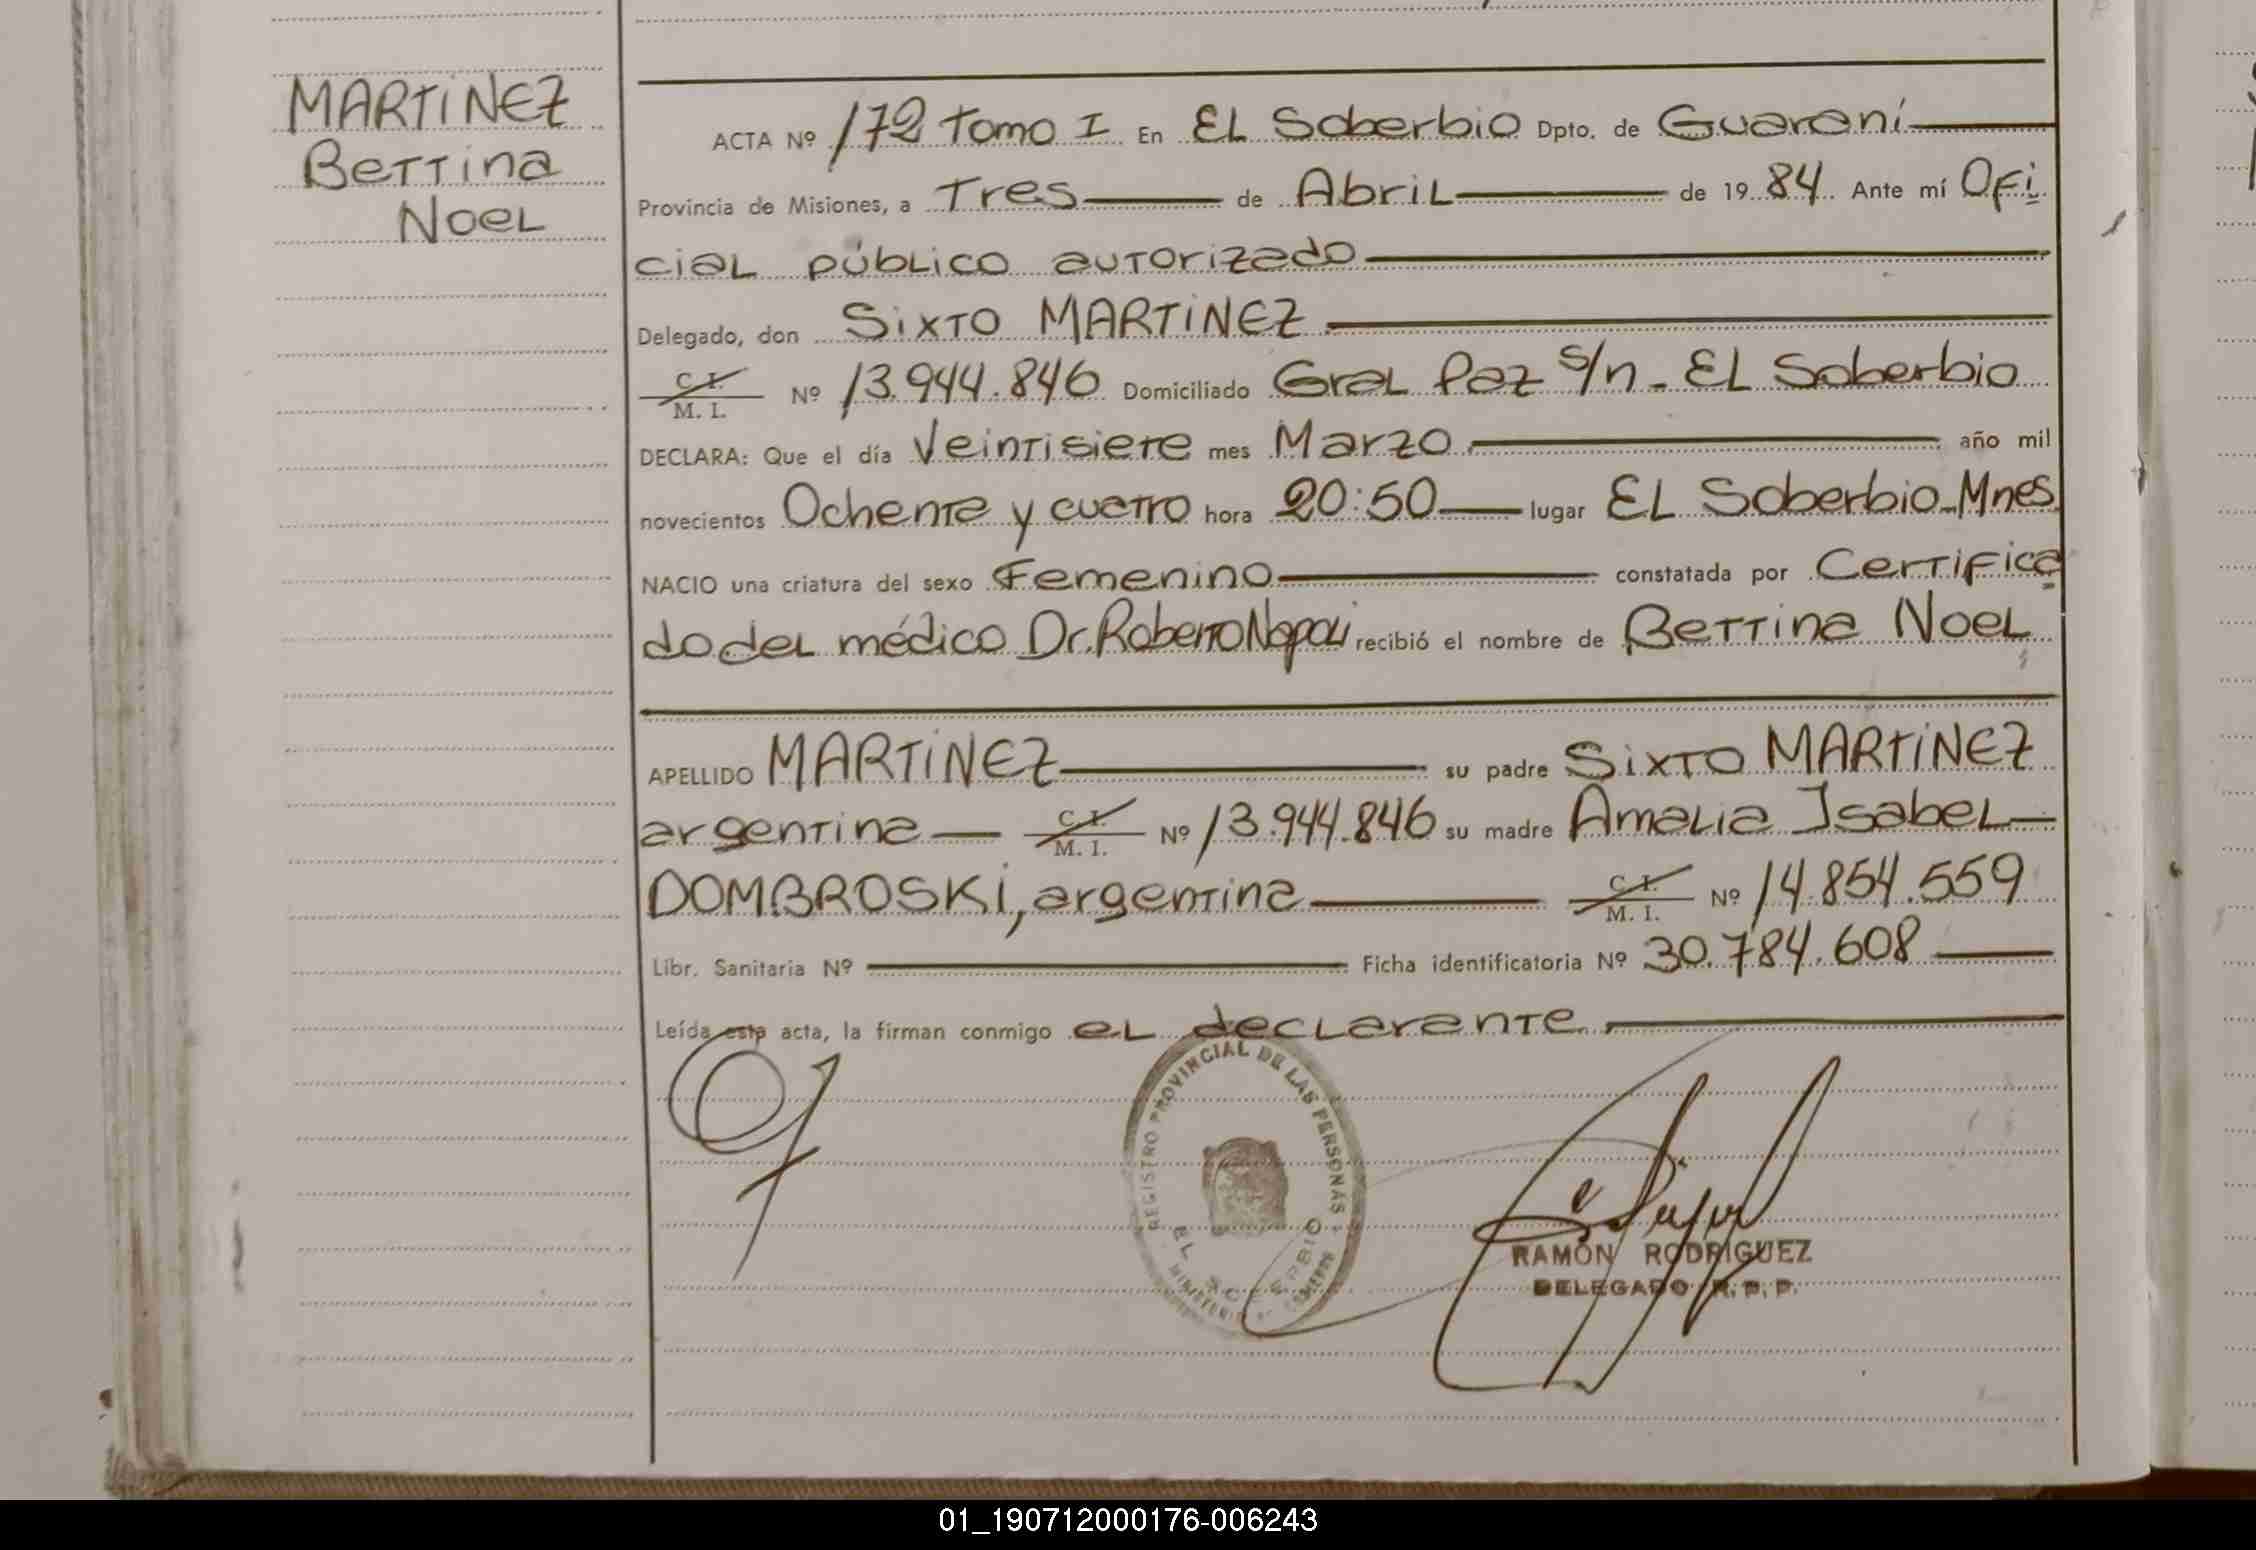 MARTINEZ
Bettina
Noel
ACTA Nº 172 Tomo I En El Soberbio Dpto. de Guaraní
Provincia de Misiones, a Tres de Abril de 19 84 Ante mí Ofi
cial público autorizado
Delegado, don Sixto MARTINEZ
C. I.
M. I. Nº 13.944.846 Domiciliado Gral Paz s/n - El Soberbio
DECLARA: Que el día Veintisiete mes Marzo año mil
novecientos Ochenta y cuatro hora 20:50 lugar El Soberbio-Mnes
NACIO una criatura del sexo Femenino constatada por Certifica
do del médico Dr. Roberto Napoli recibió el nombre de Bettina Noel
APELLIDO MARTINEZ su padre Sixto MARTINEZ
argentina C. I. M. I. Nº 13.944.846 su madre Amalia Isabel
DOMBROSKI, argentina C. I. M. I. Nº 14.854.559
Libr. Sanitaria Nº Ficha identificatoria Nº 30.784.608
Leída esta acta, la firman conmigo el declarante
REGISTRO PROVINCIAL DE LAS PERSONAS
EL SOBERBIO
RAMÓN RODRIGUEZ
DELEGADO R.P.P.
01_190712000176-006243